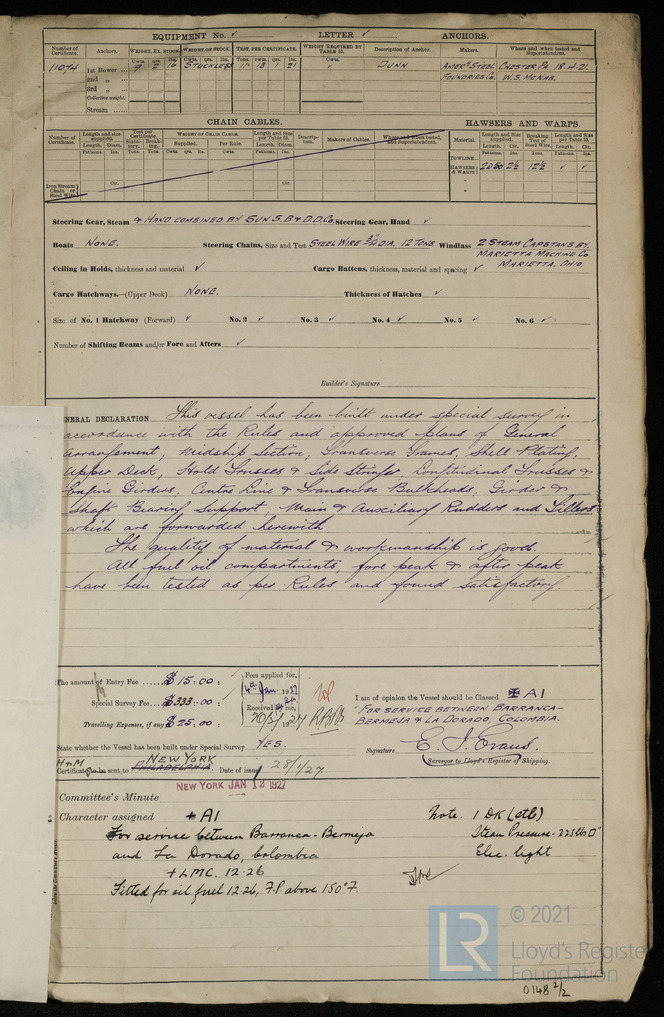 EQUIPMENT No. ✓ LETTER ✓ ANCHORS.
Number of Certificate. Anchors. WEIGHT, EX. STOCK. WEIGHT OF STOCK. TEST, PER CERTIFICATE. WEIGHT REQUIRED BY TABLE 53. Description of Anchor. Makers. Where and when tested and Superintendent.
Cwts. qrs. lbs. Cwts. qrs. lbs. Tons. cwts. qrs. lbs. Cwts.
11074 1st Bower 9 2 16 STOCKLESS 11 13 1 21 ✓ DUNN AMERn STEEL CHESTER PA. 18.4.21.
2nd „ FOUNDRIES CO. W.S. MCNAB.
3rd „
Collective weight.
Stream
CHAIN CABLES. HAWSERS AND WARPS.
Number of Certificate. Length and size supplied. Test per Certificate. WEIGHT OF CHAIN CABLE. Length and Size per Table 53. Description. Makers of Cables. Where and when tested, and Superintendent. Material. Length and Size supplied. Breaking Test of Steel Wire. Length and Size per Table 53.
Length. Diam. Statutory. Breaking. Supplied. Per Rule. Length. Diam. Length. Cir. Length. Cir.
Fathoms. Ins. Tons. Tons. Cwts. qrs. lbs. Cwts. Fathoms. Ins. Fathoms. Ins. Tons. Fathoms. Ins.
TOWLINE
HAWSERS & WARPS 2250 2½ 12½ ✓ ✓
Iron Stream Chain or Steel Wire Cir. Cir.
Steering Gear, Steam & HAND COMBINED BY SUN S.B & D.D. Co. Steering Gear, Hand ✓
Boats NONE. Steering Chains, Size and Test STEEL WIRE DIA. 12 TONS Windlass 2 STEAM CAPSTANS BY
MARIETTA MACHINE Co
Ceiling in Holds, thickness and material ✓ Cargo Battens, thickness, material and spacing ✓ MARIETTA. OHIO.
Cargo Hatchways.—(Upper Deck) NONE. Thickness of Hatches ✓
Size of No. 1 Hatchway (Forward) ✓ No. 2 ✓ No. 3 ✓ No. 4 ✓ No. 5 ✓ No. 6 ✓
Number of Shifting Beams and/or Fore and Afters ✓
Builder's Signature
NERAL DECLARATION This vessel has been built under special survey in
accordance with the Rules and approved plans of General
Arrangement, Midship Section, Transverse Frames, Shell Plating,
Upper Deck, Hold Trusses & Side Stringer, Longitudinal Trusses &
Engine Girders, Centre Line & Transverse Bulkheads, Girder &
Shaft Bearing Support, Main & Auxiliary Rudders and Tillers
which are forwarded herewith
The quality of material & workmanship is good.
All fuel oil compartments, fore peak & after peak
have been tested as per Rules and found satisfactory.
The amount of Entry Fee $ 15:00: Fees applied for,
4th Jan. 1927
Special Survey Fee $ 333:00: Received by me,
Travelling Expenses, if any $ 25:00:
I am of opinion the Vessel should be Classed ✠ A1
"FOR SERVICE BETWEEN BARRANCA-
BERMEJA & LA DORADO, COLOMBIA.
State whether the Vessel has been built under Special Survey YES.
Signature E. J. Evans.
Surveyor to Lloyd's Register of Shipping.
H & M NEW YORK
Certificate to be sent to PHILADELPHIA. Date of issue 28/1/27.
Committee's Minute NEW YORK JAN 12 1927
Character assigned + A1
For service between Barranca-Bermeja
and La Dorado, Colombia
+ LMC. 12.26
Fitted for oil fuel 12.26, F.P. above 150°F.
Note. 1 DK (stl)
Steam Pressure - 225 lbs □"
Elec. light
LR © 2021
Lloyd's Register
Foundation
0148 2/2